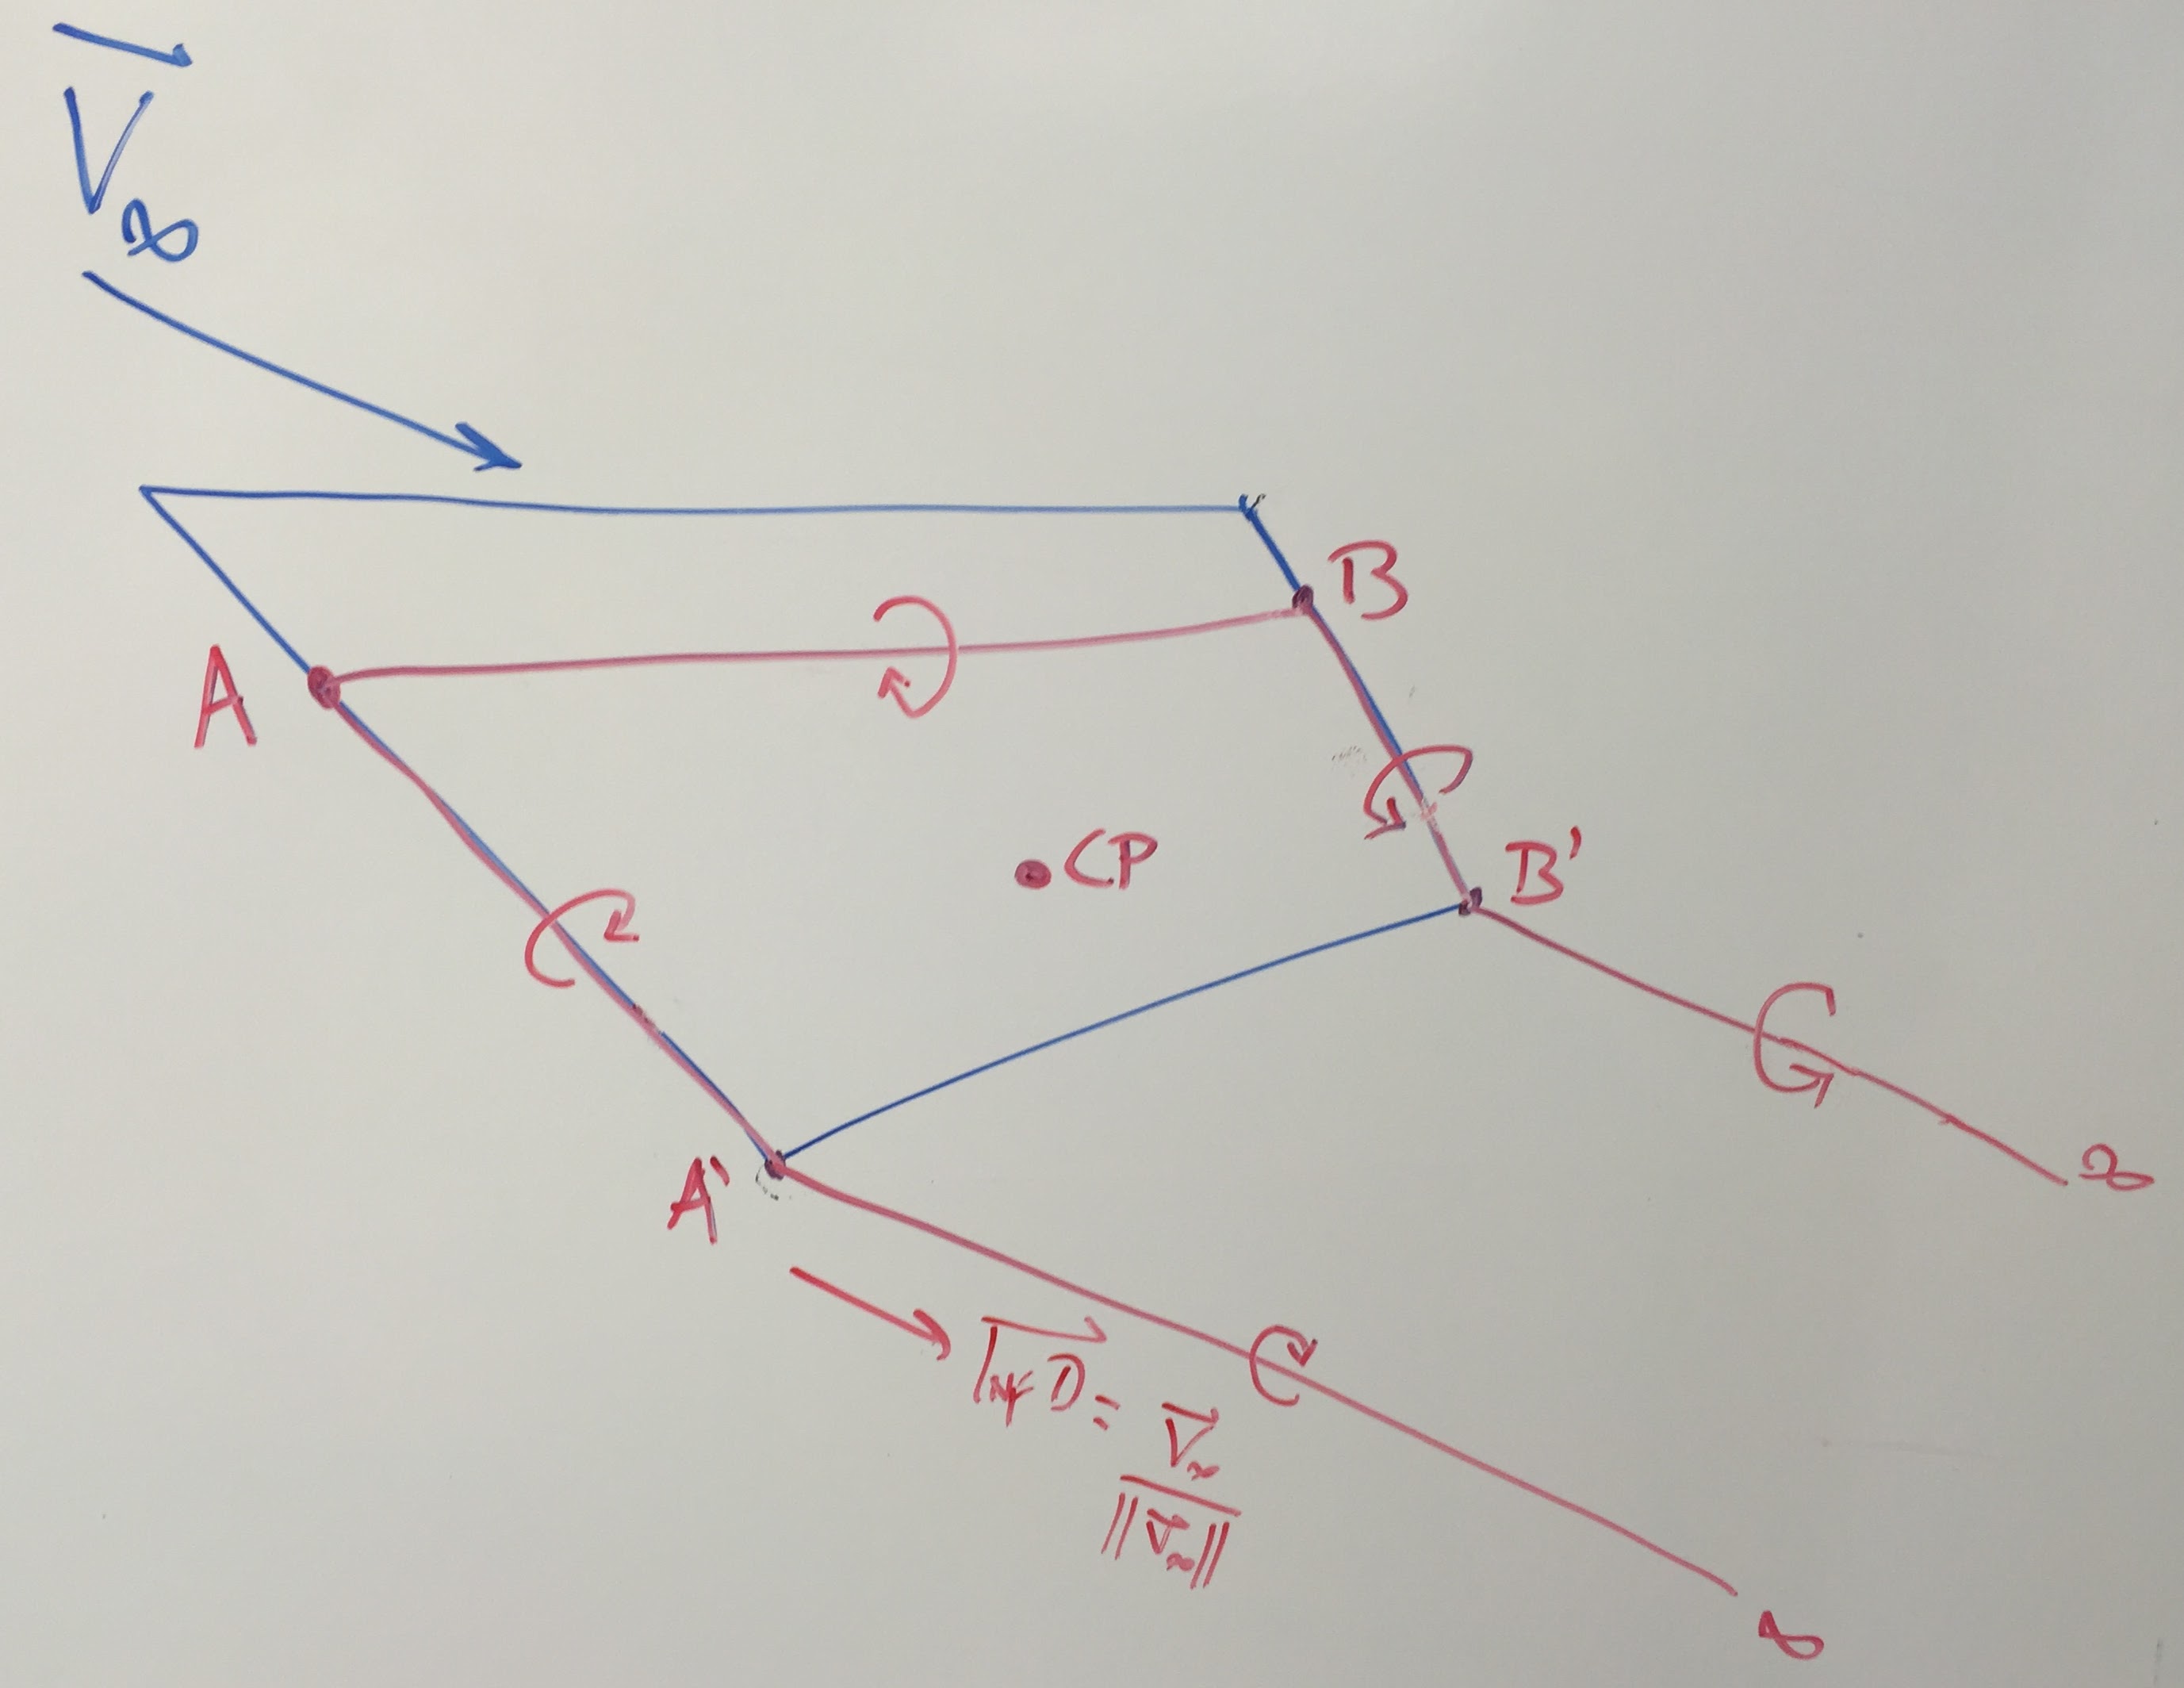 V∞
B
A
CP
B'
∞
A'
InfD = V∞ / ||V∞||
∞